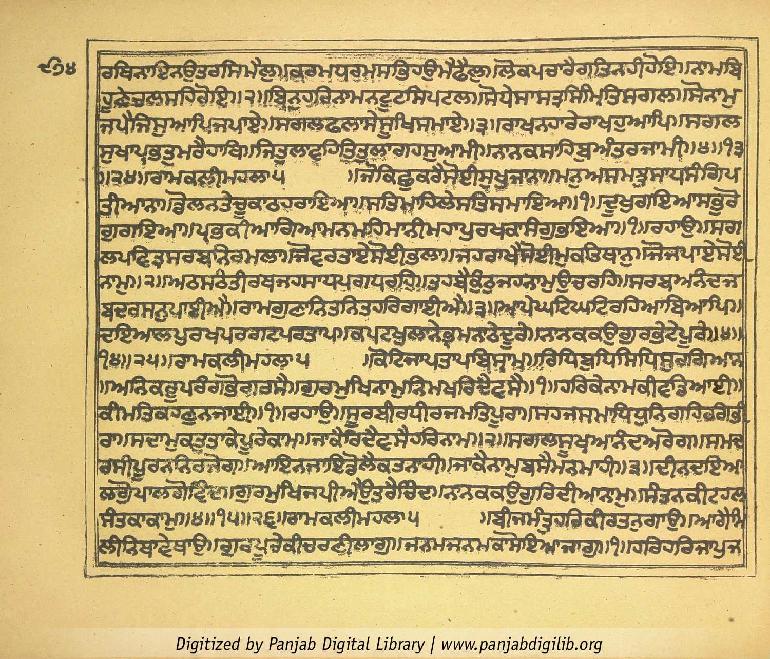 ੮੭੪
ਰਬਿਨਾਇਨਉਤਰਸਿਮੈਲੁ॥ਕਰਮਧਰਮਸਭਿਹਉਮੈਫੈਲੁ॥ਲੋਕਪਚਾਰੈਗਤਿਨਹੀਹੋਇ॥ਨਾਮਬਿ
ਹੂਣੇਚਲਸਹਿਰੋਇ॥੨॥ਬਿਨੁਹਰਿਨਾਮਨਟੂਟਸਿਪਟਲ॥ਸੋਧੇਸਾਸਤ੍ਰਸਿਮ੍ਰਿਤਿਸਗਲ॥ਸੋਨਾਮੁ
ਜਪੈਜਿਸੁਆਪਿਜਪਾਏ॥ਸਗਲਫਲਾਸੇਸੂਖਿਸਮਾਏ॥੩॥ਰਾਖਨਹਾਰੇਰਾਖਹੁਆਪਿ॥ਸਗਲ
ਸੁਖਾਪ੍ਰਭਤੁਮਰੈਹਾਥਿ॥ਜਿਤੁਲਾਵਹਿਤਿਤੁਲਾਗਹਸੁਆਮੀ॥ਨਾਨਕਸਾਹਿਬੁਅੰਤਰਜਾਮੀ॥੪॥੧੩
॥੨੪॥ਰਾਮਕਲੀਮਹਲਾ੫ ॥ਜੋਕਿਛੁਕਰੈਸੋਈਸੁਖੁਜਾਨਾ॥ਮਨੁਅਸਮਝੁਸਾਧਸੰਗਿਪ
ਤੀਆਨਾ॥ਡੋਲਨਤੇਚੂਕਾਠਹਰਾਇਆ॥ਸਤਿਮਾਹਿਲੇਸਤਿਸਮਾਇਆ॥੧॥ਦੂਖੁਗਇਆਸਭੁਰੋ
ਗੁਗਇਆ॥ਪ੍ਰਭਕੀਆਗਿਆਮਨਮਹਿਮਾਨੀਮਹਾਪੁਰਖਕਾਸੰਗੁਭਇਆ॥੧॥ਰਹਾਉ॥ਸਗ
ਲਪਵਿਤ੍ਰਸਰਬਨਿਰਮਲਾ॥ਜੋਵਰਤਾਏਸੋਈਭਲਾ॥ਜਹਰਾਖੈਸੋਈਮੁਕਤਿਥਾਨੁ॥ਜੋਜਪਾਏਸੋਈ
ਨਾਮੁ॥੨॥ਅਠਸਠਿਤੀਰਥਜਹਸਾਧਪਗਧਰਹਿ॥ਤਹਬੈਕੁੰਠੁਜਹਨਾਮੁਉਚਰਹਿ॥ਸਰਬਅਨੰਦਜ
ਬਦਰਸਨੁਪਾਈਐ॥ਰਾਮਗੁਣਾਨਿਤਨਿਤਹਰਿਗਾਈਐ॥੩॥ਆਪੇਘਟਿਘਟਿਰਹਿਆਬਿਆਪਿ॥
ਦਇਆਲਪੁਰਖਪਰਗਟਪਰਤਾਪ॥ਕਪਟਖੁਲਾਨੇਭ੍ਰਮਨਾਠੇਦੂਰੇ॥ਨਾਨਕਕਉਗੁਰਭੇਟੇਪੂਰੇ॥੪॥
੧੪॥੨੫॥ਰਾਮਕਲੀਮਹਲਾ੫ ॥ਕੋਟਿਜਾਪਤਾਪਬਿਸ੍ਰਾਮ॥ਰਿਧਿਬੁਧਿਸਿਧਿਸੁਰਗਿਆਨ
॥ਅਨਿਕਰੂਪਰੰਗਭੋਗਰਸੈ॥ਗੁਰਮੁਖਿਨਾਮੁਨਿਮਖਰਿਦੈਵਸੈ॥੧॥ਹਰਿਕੇਨਾਮਕੀਵਡਿਆਈ॥
ਕੀਮਤਿਕਹਣੁਨਜਾਈ॥੧॥ਰਹਾਉ॥ਸੂਰਬੀਰਧੀਰਜਮਤਿਪੂਰਾ॥ਸਹਜਸਮਾਧਿਧੁਨਿਗਹਿਰਗੰਭੀ
ਰਾ॥ਸਦਾਮੁਕਤੁਤਾਕੇਪੂਰੇਕਾਮ॥ਜਾਕੈਰਿਦੈਵਸੈਹਰਿਨਾਮ॥੨॥ਸਗਲਸੂਖਆਨੰਦਅਰੋਗ॥ਸਮਦ
ਰਸੀਪੂਰਨਨਿਰਜੋਗ॥ਆਇਨਜਾਇਡੋਲੈਕਤਨਾਹੀ॥ਜਾਕੈਨਾਮੁਬਸੈਮਨਮਾਹੀ॥੩॥ਦੀਨਦਇਆ
ਲਗੋੁਪਾਲਗੋਵਿੰਦ॥ਗੁਰਮੁਖਿਜਪੀਐਉਤਰੈਚਿੰਦ॥ਨਾਨਕਕਉਗੁਰਿਦੀਆਨਾਮੁ॥ਸੰਤਨਕੀਟਹਲ
ਸੰਤਕਾਕਾਮੁ॥੪॥੧੫॥੨੬॥ਰਾਮਕਲੀਮਹਲਾ੫ ॥ਬੀਜਮੰਤ੍ਰੁਹਰਿਕੀਰਤਨੁਗਾਉ॥ਆਗੈਮਿ
ਲੀਨਿਥਾਵੇਥਾਉ॥ਗੁਰਪੂਰੇਕੀਚਰਣੀਲਾਗੁ॥ਜਨਮਜਨਮਕਾਸੋਇਆਜਾਗੁ॥੧॥ਹਰਿਹਰਿਜਾਪੁਜ
Digitized by Panjab Digital Library | www.panjabdigilib.org